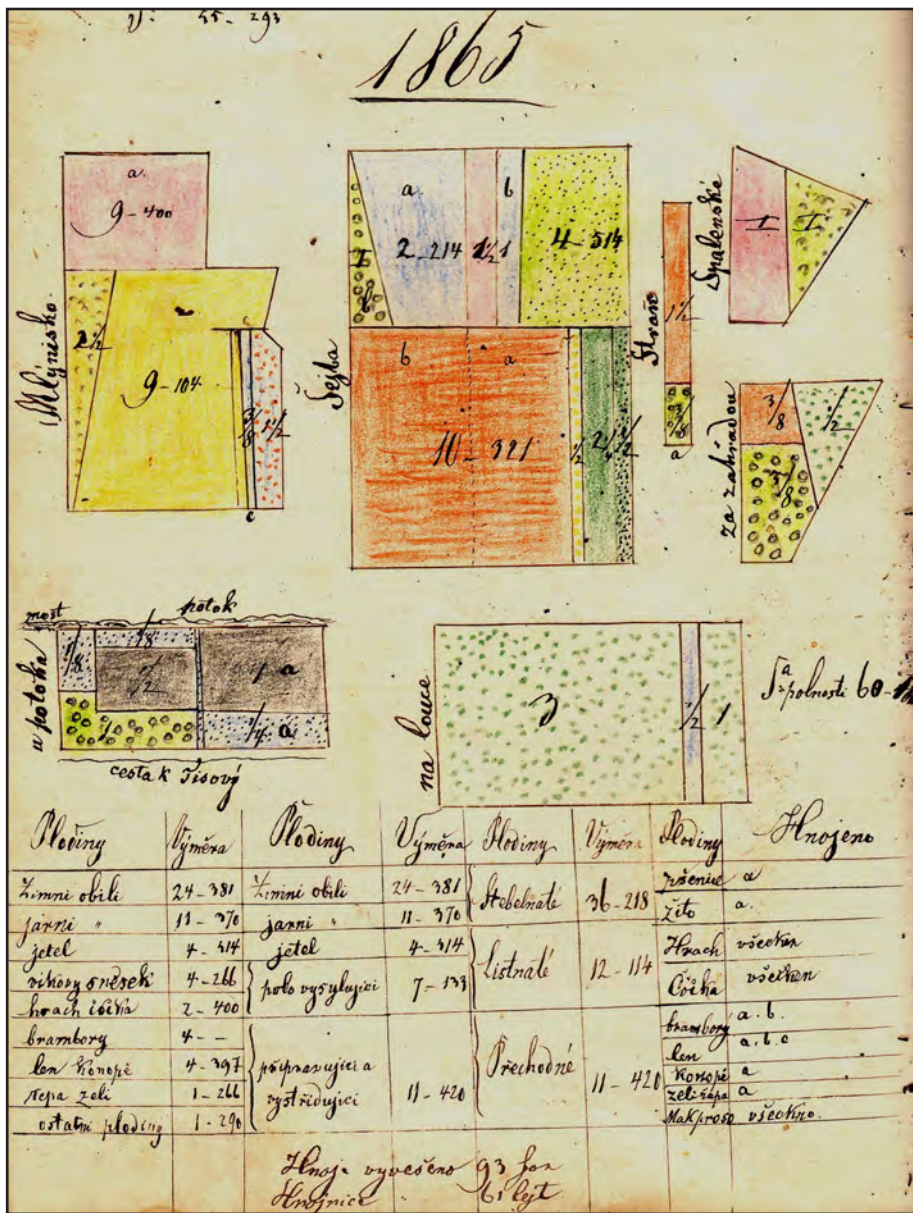 55 - 293
1865
Mlýnisko
a.
9 - 400
2 1/2
9 - 104
c
3/8
1 1/2
c
Šejba
a
b
I
b
2 - 214
1/2
1
4 - 514
b
a
10 - 321
1/2
2 1/4
1/2
Straň
1 1/2
3/8
a
Spalenské
I
I
za zahradou
3/8
1/2
5/8
u potoka
most
potok
1/8
1/8
1/2
1 a
1
1/4 a
cesta k Tisový
na louce
3
1/2
1
Sa polnosti 60 -
Plodiny Výměra Plodiny Výměra Plodiny Výměra Plodiny Hnojeno
Zimni obili 24 - 381 Zimni obili 24 - 381 Stebelnaté 36 - 218 pšenice a
žito a.
jarni " 11 - 370 jarni " 11 - 370
jetel 4 - 314 jetel 4 - 314 Listnaté 12 - 114 Hrach všecken
vikovy směsek 4 - 266 polo vysylujici 7 - 133 Čočka všecken
hrach čočka 2 - 400
brambory 4 - - připravujici a vystřidujici 11 - 420 Přechodné 11 - 420 brambory a. b.
len konopě 4 - 397 len a. b. c
řepa zeli 1 - 266 Konopě a
zeli řepa a
ostatni plodiny 1 - 290 Mak proso všeckno.
Hnoje vyvešeno 93 for
Hnojnice " 61 lejt